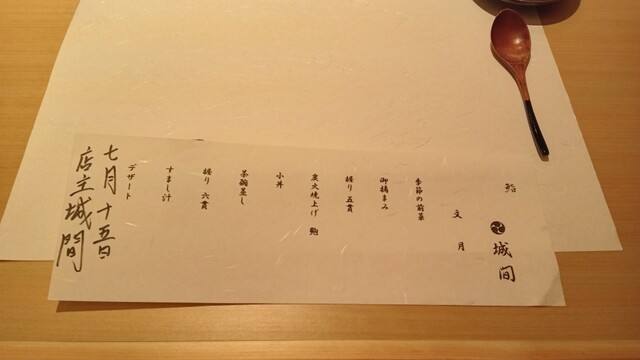 鮨 城間
文月
季節の前菜
御摘まみ
握り 五貫
炭火焼上げ 鮑
小丼
茶碗蒸し
握り 六貫
すまし汁
デザート
七月十五日
店主城間